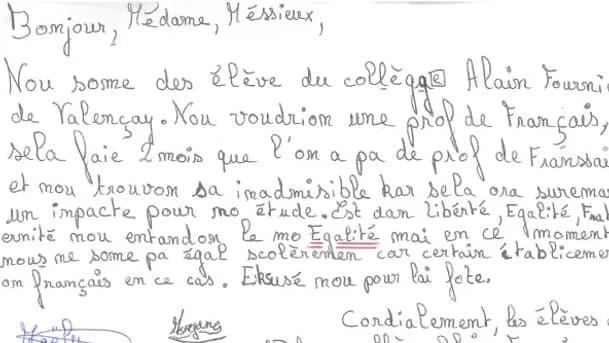 Bonjour, Médame, Méssieux,
Nou some des élève du collègge Alain Fourni
de Valençay. Nou voudrion une prof de Français,
sela faie 2 mois que l'on a pa de prof de Franssai
et nou trouvon sa inadmisible kar sela ora suremen
un impacte pour no étude. Est dan libérté, Egalité, Frat
ernité nou entandon le mo Egalité mai en ce moment
nous ne some pa égal scolèremen car certain établicemen
on français en ce cas. Eksusé nou pour lai fote.
Morgane
Cordialement, les élèves